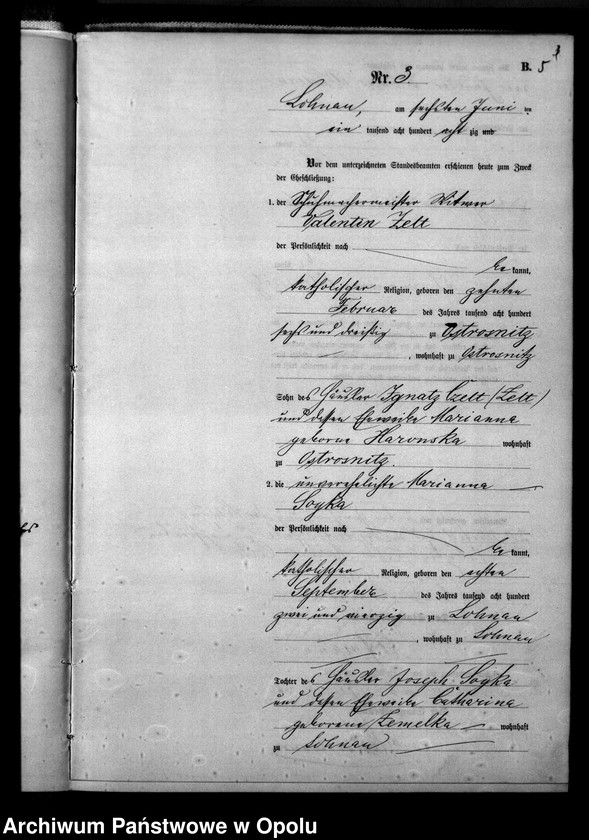 3
B.
5
Nr. 3.
Lohnau, am sechsten Juni
ein tausend acht hundert acht zig und
Vor dem unterzeichneten Standesbeamten erschienen heute zum Zweck
der Eheschließung:
1. der Schuhmachermeister Witwer
Valentin Zelt
der Persönlichkeit nach
be kannt,
katholischer Religion, geboren den zehnten
Februar des Jahres tausend acht hundert
sechs und dreißig zu Ostrosnitz
, wohnhaft zu Ostrosnitz
Sohn des Häusler Ignatz Czelt (Zelt)
und dessen Eheweibe Marianna
geborne Haronska wohnhaft
zu Ostrosnitz.
2. die unverehelichte Marianna
Soyka
der Persönlichkeit nach
be kannt,
katholischer Religion, geboren den achten
September des Jahres tausend acht hundert
zwei und vierzig zu Lohnau
, wohnhaft zu Lohnau
Tochter des Häusler Joseph Soyka
und dessen Eheweibe Catharina
geborene Zemelka wohnhaft
zu Lohnau
Archiwum Państwowe w Opolu